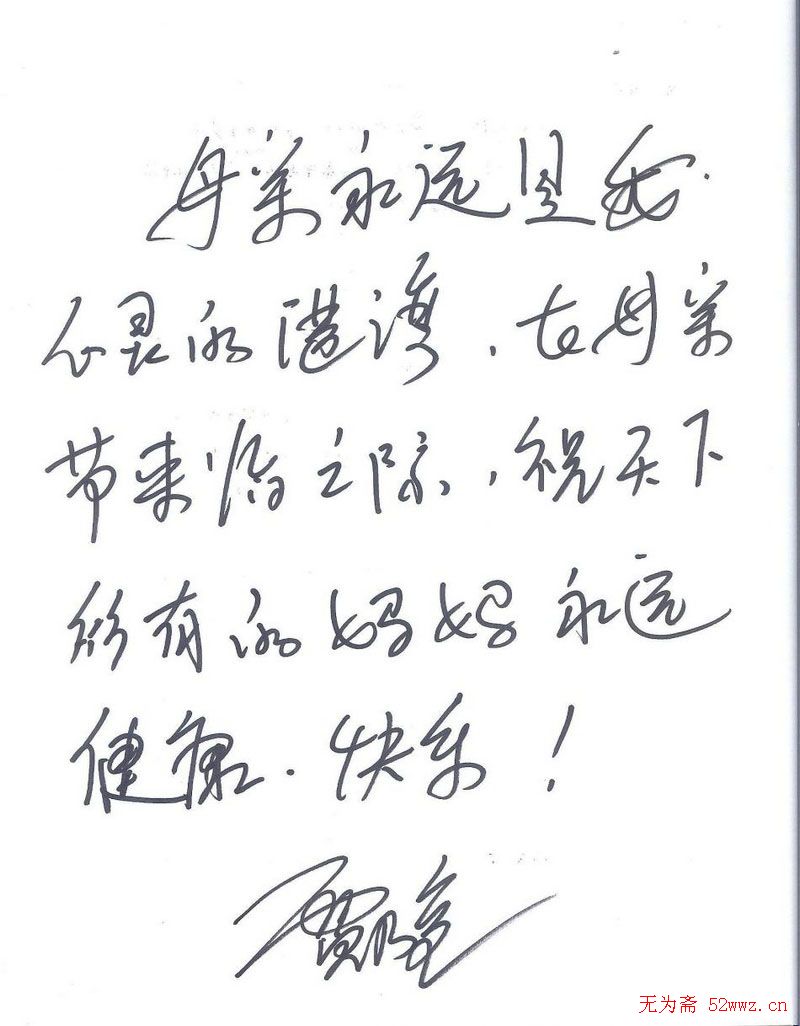 母亲永远是我
心灵的港湾，在母亲
节来临之际，祝天下
所有的妈妈永远
健康．快乐！
无为斋 52wwz.cn